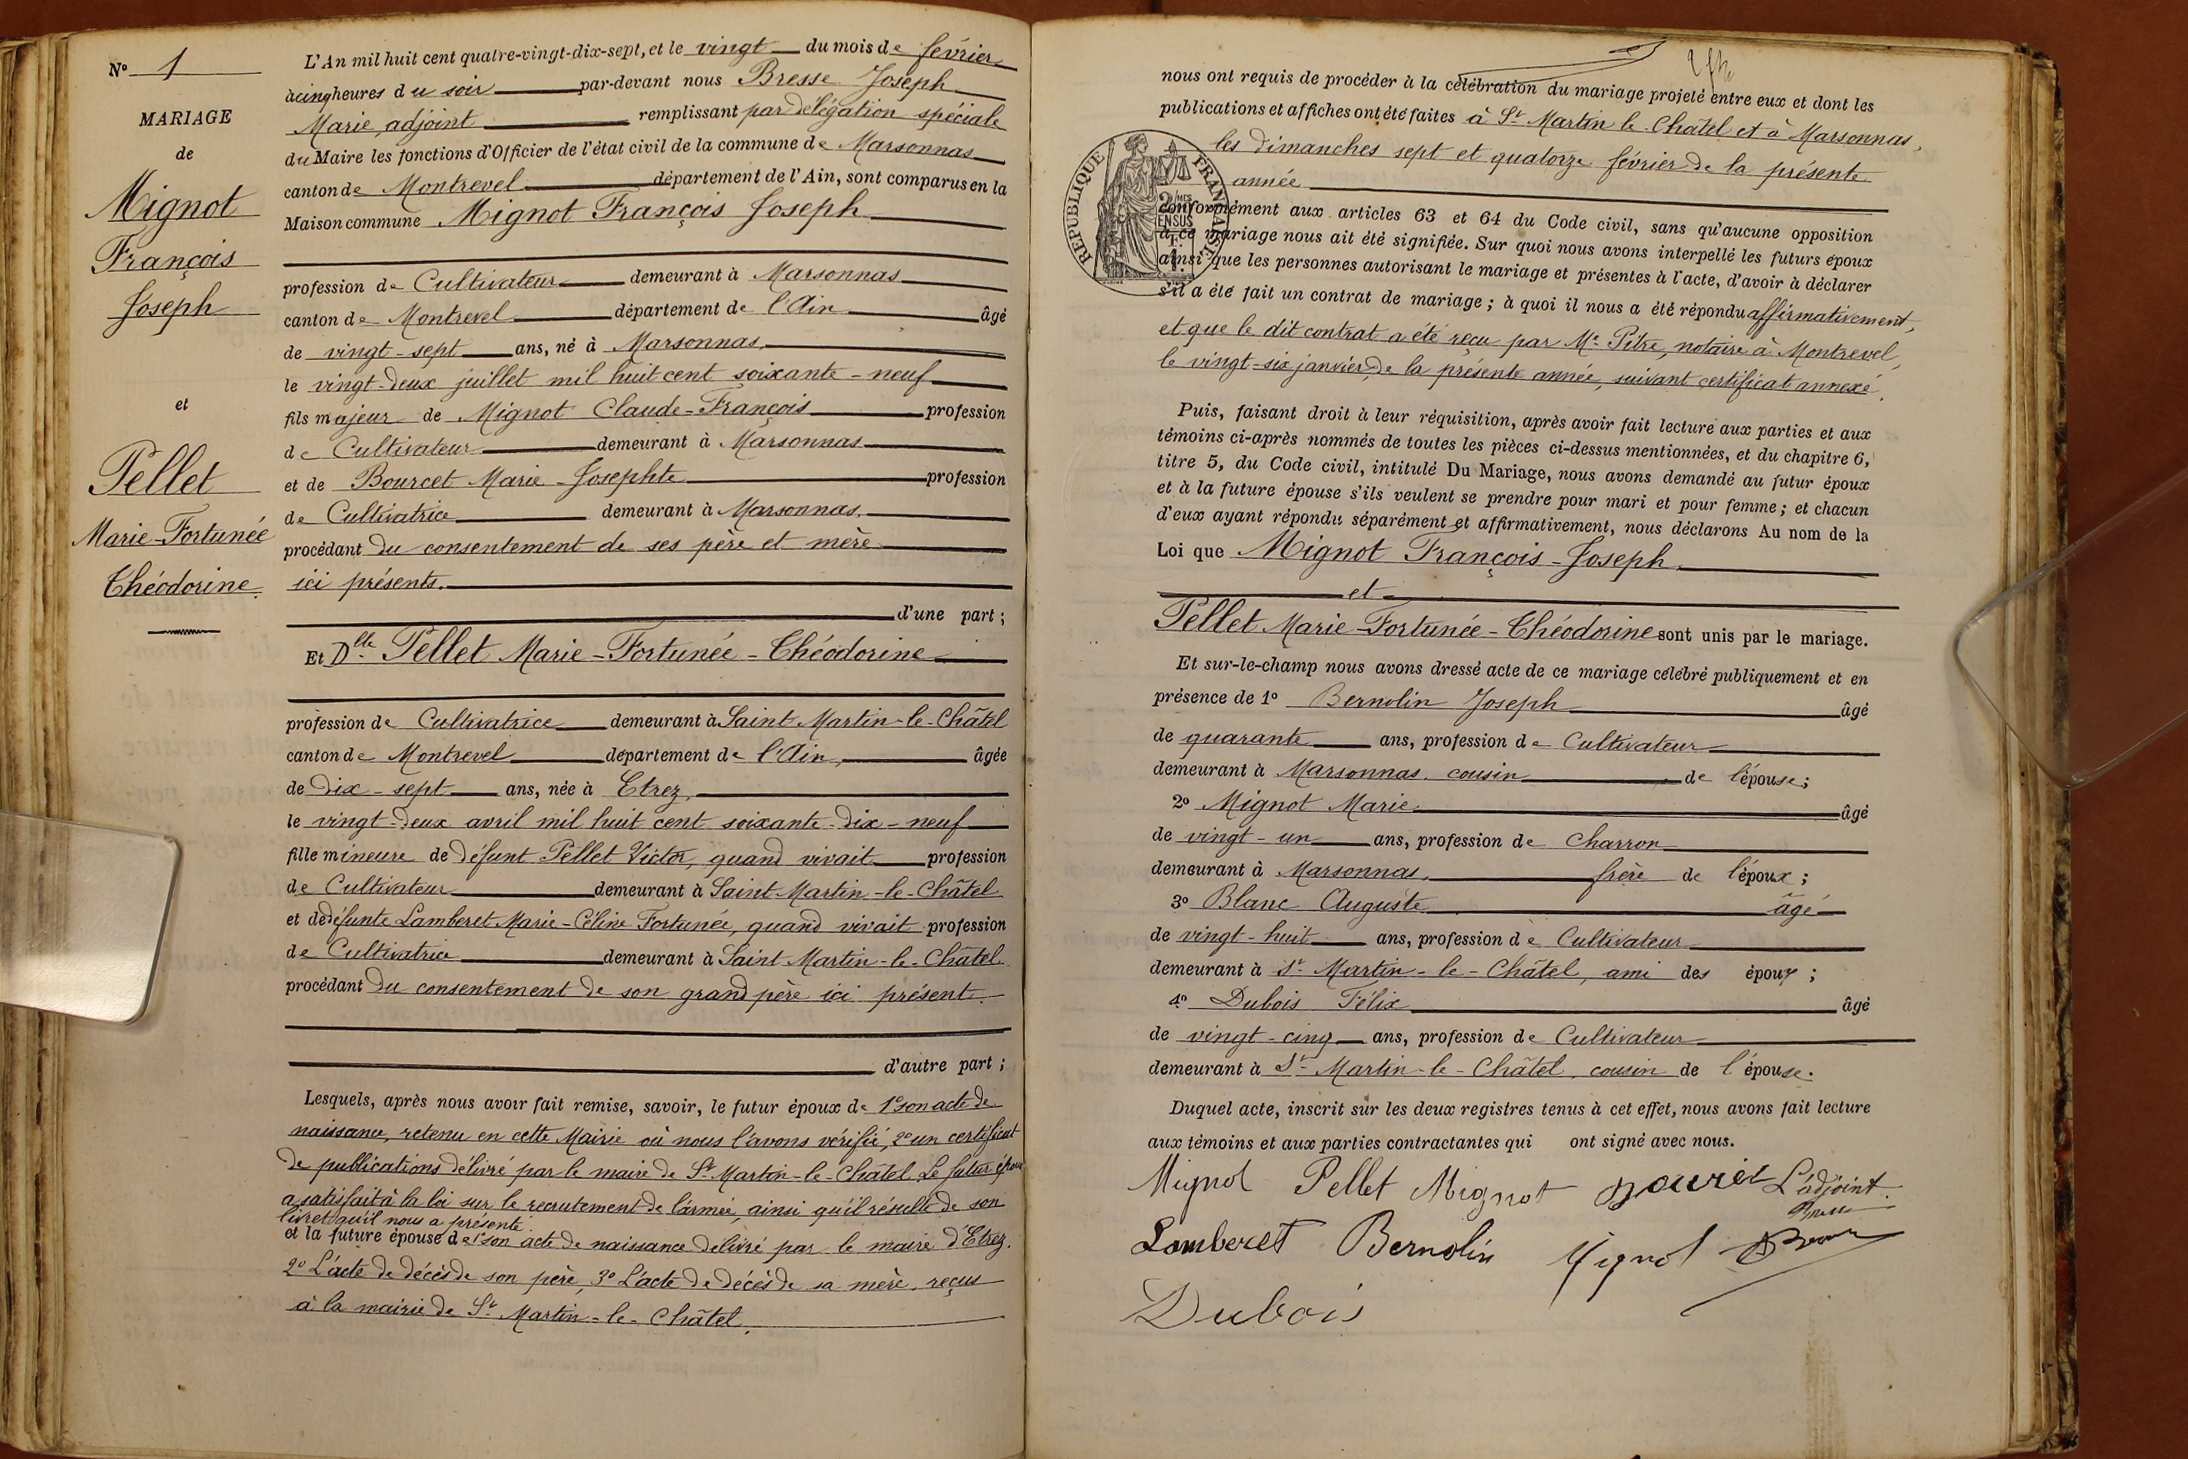 N° 1
MARIAGE
de
Mignot
François
Joseph
et
Pellet
Marie-Fortunée
Théodorine.
L'An mil huit cent quatre-vingt-dix-sept, et le vingt du mois de février
à cinq heures du soir par-devant nous Bresse Joseph
Marie, adjoint remplissant par délégation spéciale
du Maire les fonctions d'Officier de l'état civil de la commune de Marsonnas
canton de Montrevel département de l'Ain, sont comparus en la
Maison commune Mignot François Joseph
profession de Cultivateur demeurant à Marsonnas
canton de Montrevel département de l'Ain âgé
de vingt-sept ans, né à Marsonnas,
le vingt-deux juillet mil huit cent soixante-neuf
fils majeur de Mignot Claude-François profession
de Cultivateur demeurant à Marsonnas
et de Bourcet Marie-Josephte profession
de Cultivatrice demeurant à Marsonnas,
procédant du consentement de ses père et mère
ici présents.
d'une part ;
Et Dlle Pellet Marie-Fortunée-Théodorine
profession de Cultivatrice demeurant à Saint Martin-le-Châtel
canton de Montrevel département de l'Ain, âgée
de dix-sept ans, née à Etrez,
le vingt-deux avril mil huit cent soixante-dix-neuf
fille mineure de défunt Pellet Victor, quand vivait profession
de Cultivateur demeurant à Saint-Martin-le-Châtel
et de défunte Lamberet Marie-Céline Fortunée, quand vivait profession
de Cultivatrice demeurant à Saint-Martin-le-Châtel
procédant du consentement de son grand père ici présent.
d'autre part ;
Lesquels, après nous avoir fait remise, savoir, le futur époux de 1° son acte de
naissance, retenu en cette Mairie où nous l'avons vérifié, 2° un certificat
de publications délivré par le maire de St Martin-le-Châtel. Le futur époux
a satisfait à la loi sur le recrutement de l'armée, ainsi qu'il résulte de son
livret qu'il nous a présenté.
et la future épouse de 1° son acte de naissance délivré par le maire d'Etrez.
2° L'acte de décès de son père, 3° L'acte de décès de sa mère, reçus
à la mairie de St Martin-le-Châtel.
nous ont requis de procéder à la célébration du mariage projeté entre eux et dont les
publications et affiches ont été faites à St Martin le Châtel et à Marsonnas,
les dimanches sept et quatorze février de la présente
année
REPUBLIQUE FRANÇAISE
conformément aux articles 63 et 64 du Code civil, sans qu'aucune opposition
à ce mariage nous ait été signifiée. Sur quoi nous avons interpellé les futurs époux
ainsi que les personnes autorisant le mariage et présentes à l'acte, d'avoir à déclarer
s'il a été fait un contrat de mariage ; à quoi il nous a été répondu affirmativement,
et que le dit contrat a été reçu par Me Pitre, notaire à Montrevel,
le vingt-six janvier de la présente année, suivant certificat annexé.
Puis, faisant droit à leur réquisition, après avoir fait lecture aux parties et aux
témoins ci-après nommés de toutes les pièces ci-dessus mentionnées, et du chapitre 6,
titre 5, du Code civil, intitulé Du Mariage, nous avons demandé au futur époux
et à la future épouse s'ils veulent se prendre pour mari et pour femme ; et chacun
d'eux ayant répondu séparément et affirmativement, nous déclarons Au nom de la
Loi que Mignot François-Joseph
et
Pellet Marie-Fortunée-Théodorine sont unis par le mariage.
Et sur-le-champ nous avons dressé acte de ce mariage célébré publiquement et en
présence de 1° Bernolin Joseph âgé
de quarante ans, profession de Cultivateur
demeurant à Marsonnas, cousin de l'épouse ;
2° Mignot Marie âgé
de vingt-un ans, profession de Charron
demeurant à Marsonnas, frère de l'époux ;
3° Blanc Auguste âgé
de vingt-huit ans, profession de Cultivateur
demeurant à St Martin-le-Châtel, ami des époux ;
4° Dubois Félix âgé
de vingt-cinq ans, profession de Cultivateur
demeurant à St Martin-le-Châtel, cousin de l'épouse.
Duquel acte, inscrit sur les deux registres tenus à cet effet, nous avons fait lecture
aux témoins et aux parties contractantes qui ont signé avec nous.
Mignot Pellet Mignot L'adjoint.
Bresse
Lamberet Bernolin Mignot
Dubois